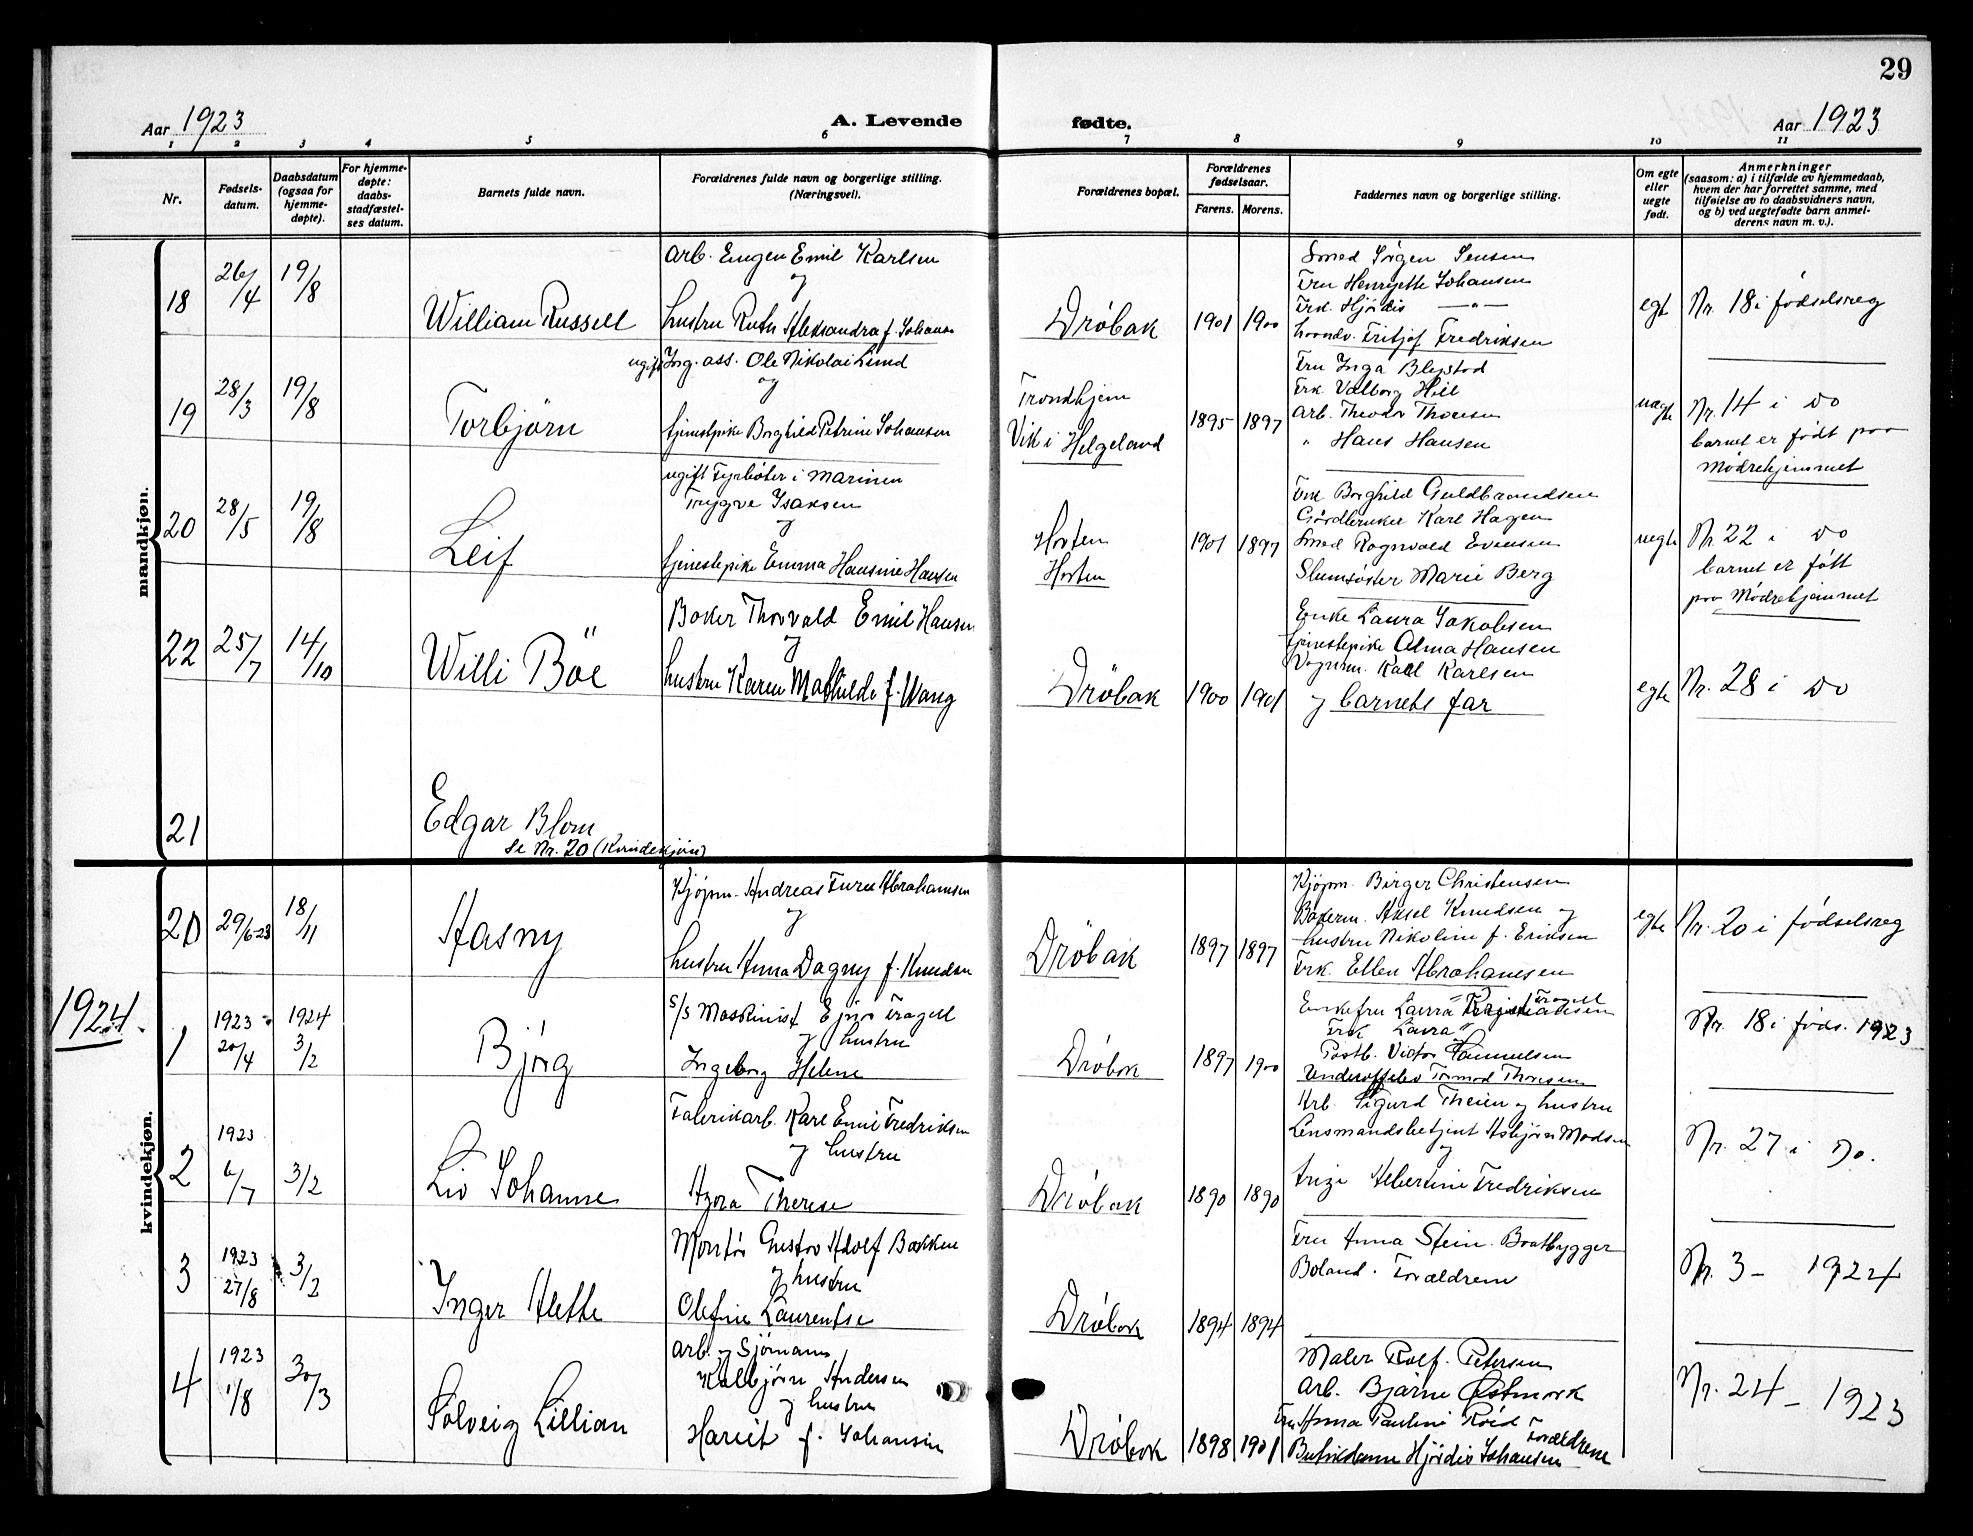 29
Aar 1923
A. Levende
fødte.
Aar 1923
1 2 3 4 5 6 7 8 9 10 11
Nr.
Fødsels-
datum.
Daabsdatum
(ogsaa for
hjemme-
døpte).
For hjemme-
døpte:
daabs-
stadfæstel-
ses datum.
Barnets fulde navn.
Forældrenes fulde navn og borgerlige stilling.
(Næringsvei).
Forældrenes bopæl.
Forældrenes
fødselsaar.
Farens. Morens.
Faddernes navn og borgerlige stilling.
Om egte
eller
uegte
født.
Anmerkninger
(saasom: a) i tilfælde av hjemmedaab,
hvem der har forrettet samme, med
tilføielse av to daabsvidners navn,
og b) ved uegtefødte barn anmel-
derens navn m. v.).
mandkjøn.
18
26/4
19/8
William Russell
Arb. Eugen Emil Karlsen
og
hustru Ruth Aleksandra f. Johans
Dröbak
1901 1900
Smed Jörgen Jensen
Fru Henriette Johansen
Frk. Hjördis — " —
Fritjof Fredriksen
egt
Nr. 18 i födselsreg
19
28/3
19/8
Torbjörn
ugift Ing. ass. Ole Nikolai Lund
og
tjenestpike Borghild Petrine Johansen
Trondhjem
Vik i Helgeland
1895 1897
Fru Inga Blystad
Frk. Valborg Hill
Arb. Theodor Thoresen
" Hans Hansen
uegte
Nr. 14 i do
barnet er födt paa
Mödrehjemmet
20
28/5
19/8
Leif
ugift Fyrböter i Marinen
Trygve Isaksen
og
tjenestepike Emma Hansine Hansen
Horten
Horten
1901 1897
Frk Borghild Guldbrandsen
Gårdbruker Karl Hagen
Smed Ragnvald Evensen
Slumsöster Marie Berg
uegte
Nr 22 i do
barnet er född
paa Mödrehjemmet
22
25/7
14/10
Willi Böe
Baker Thorvald Emil Hansen
og
hustru Karen Mathilde f. Wang
Dröbak
1900 1901
Enke Laura Jakobsen
tjenestepike Alma Hansen
Vognm. Karl Karlsen
og barnets far
egte
Nr. 28 i do
21
Edgar Blom
Se Nr. 20 (Kvindekjön)
kvindekjøn.
20
29/6-23
18/11
Aasny
Kjöpm. Andreas Furu Abrahamsen
og
hustru Anna Dagny f. Knudsen
Dröbak
1897 1897
Kjöpm. Birger Christensen
Bakerm. Aksel Knudsen og
hustru Nikoline f. Eriksen
Frk. Ellen Abrahamsen
egte
Nr. 20 i födselsreg
1924.
1
1923
20/4
1924
3/2
Björg
S/S Maskinist Ejnar Fragell
og hustru
Ingeborg Helene
Dröbak
1897 1900
Enkefru Laura Fragell
Frk Laura "
Postb. Victor Samuelsen
Tormod Thoresen
Nr. 18 i föds. 1923
2
1923
6/7
3/2
Liv Johanne
Fabrikarb. Karl Emil Fredriksen
og hustru
Agna Therese
Dröbak
1890 1890
Arb. Sigurd Theien og hustru
Lensmandsbetjent Asbjörn Madsen
og
Albertine Fredriksen
Nr. 27 i Do.
3
1923
27/8
3/2
Inger Alette
Montör Gustav Adolf Bakken
og hustru
Olefine Laurentse
Dröbak
1894 1894
Fru Anna Stein. Baatbygger
Boland. Forældrene
Nr. 3 - 1924
4
1923
1/8
30/3
Solveig Lillian
Arb. og Sjömann
Kolbjörn Andersen
og hustru
Harriet f. Johansen
Dröbak
1898 1901
Maler Rolf Petersen
Arb. Bjarne Östmork
Fru Anna Pauline Röed
Forældrene
Butikdame Hjördis Johansen
Nr. 24 - 1923